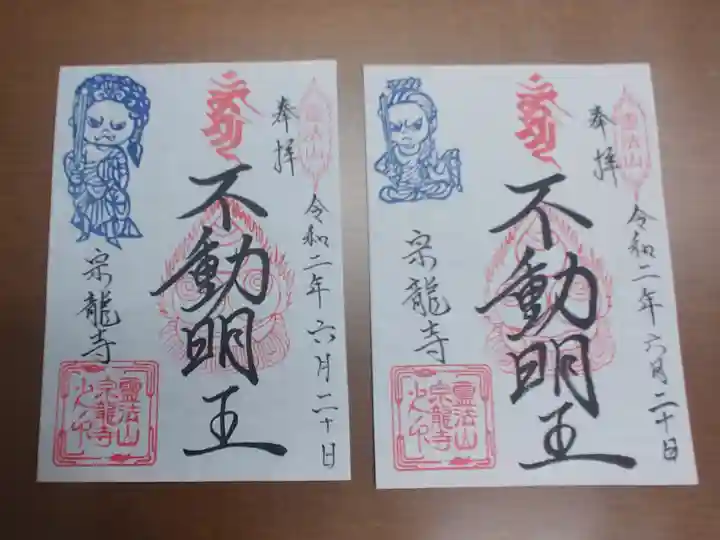 奉拝
令和二年六月二十日
不動明王
宗龍寺
霊法山
霊法山
宗龍寺
之印
奉拝
令和二年六月二十日
不動明王
宗龍寺
霊法山
霊法山
宗龍寺
之印